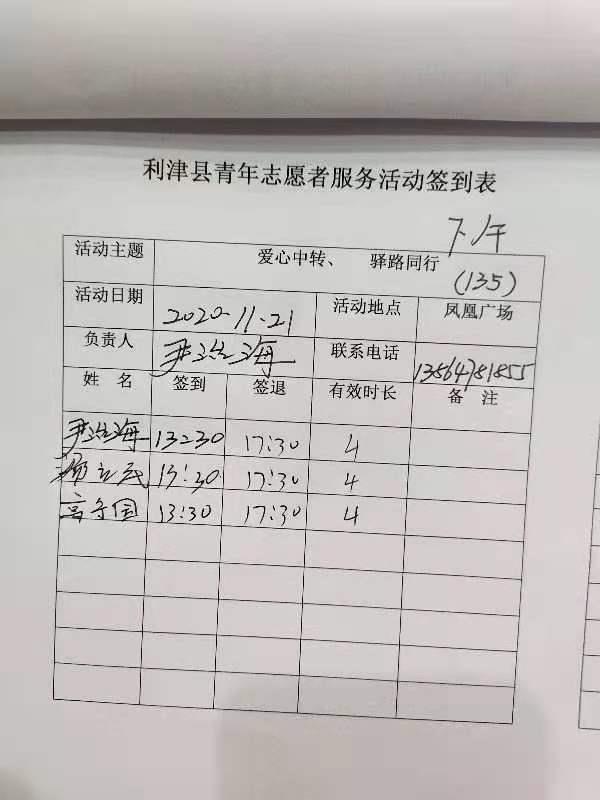 利津县青年志愿者服务活动签到表
下午
活动主题 爱心中转、 驿路同行 (135)
活动日期 2020-11-21 活动地点 凤凰广场
负责人 尹海 联系电话 13564781855
姓 名 签到 签退 有效时长 备 注
尹海 13:30 17:30 4
13:30 17:30 4
高守国 13:30 17:30 4